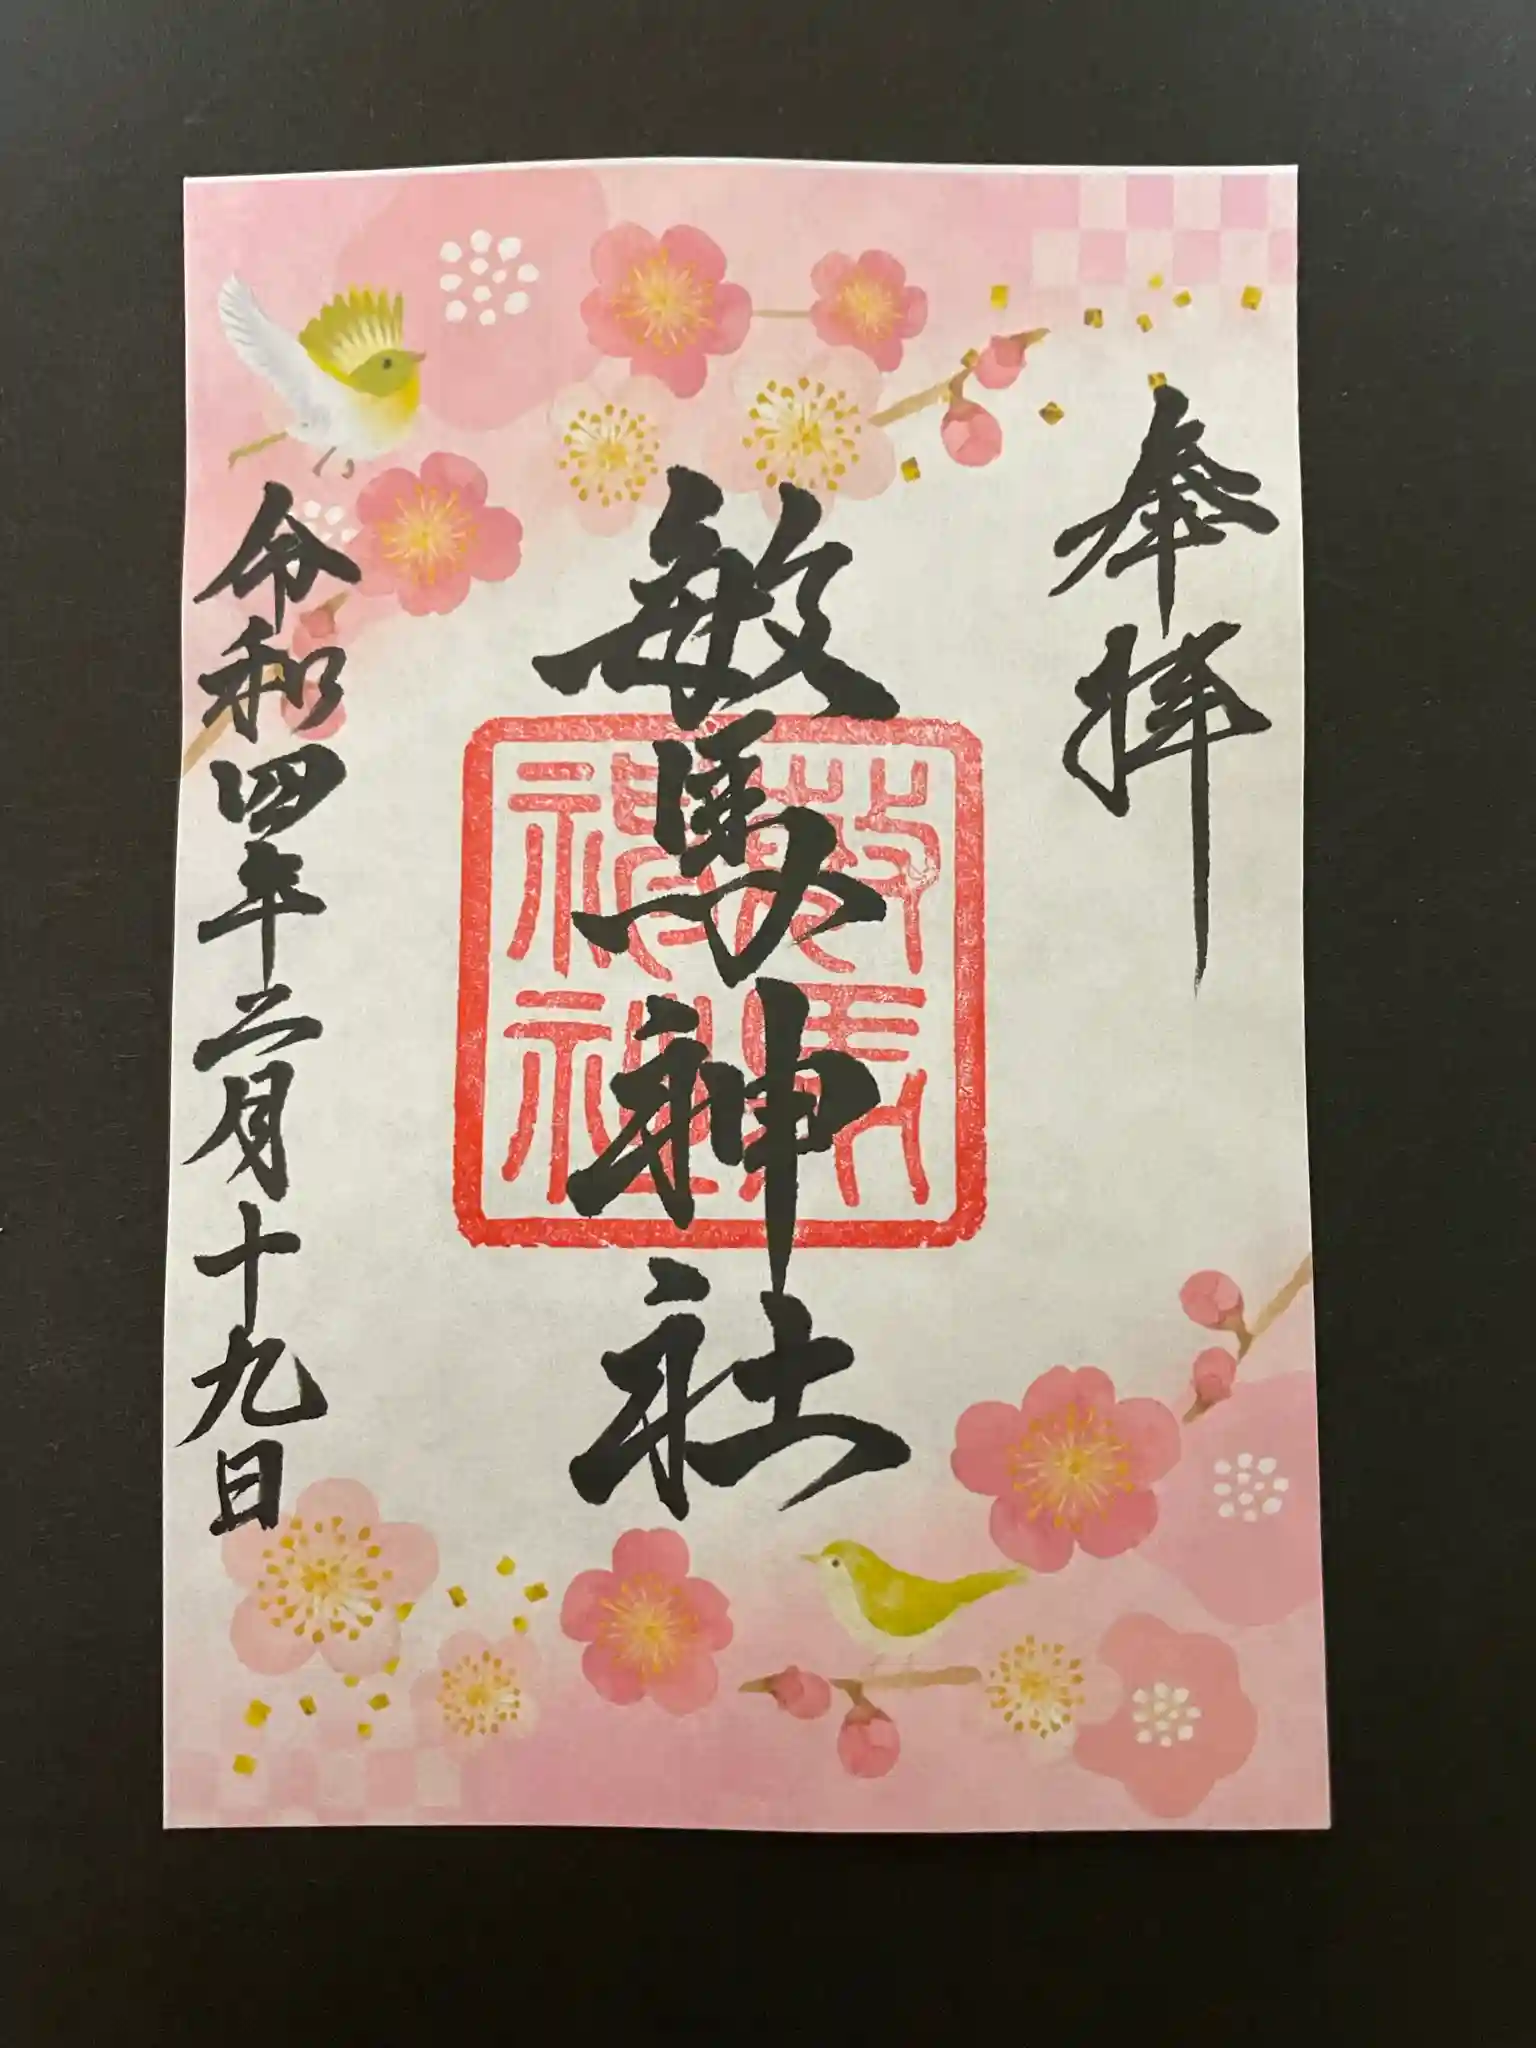 奉拝
敏馬神社
敏馬
神社
令和四年二月十九日